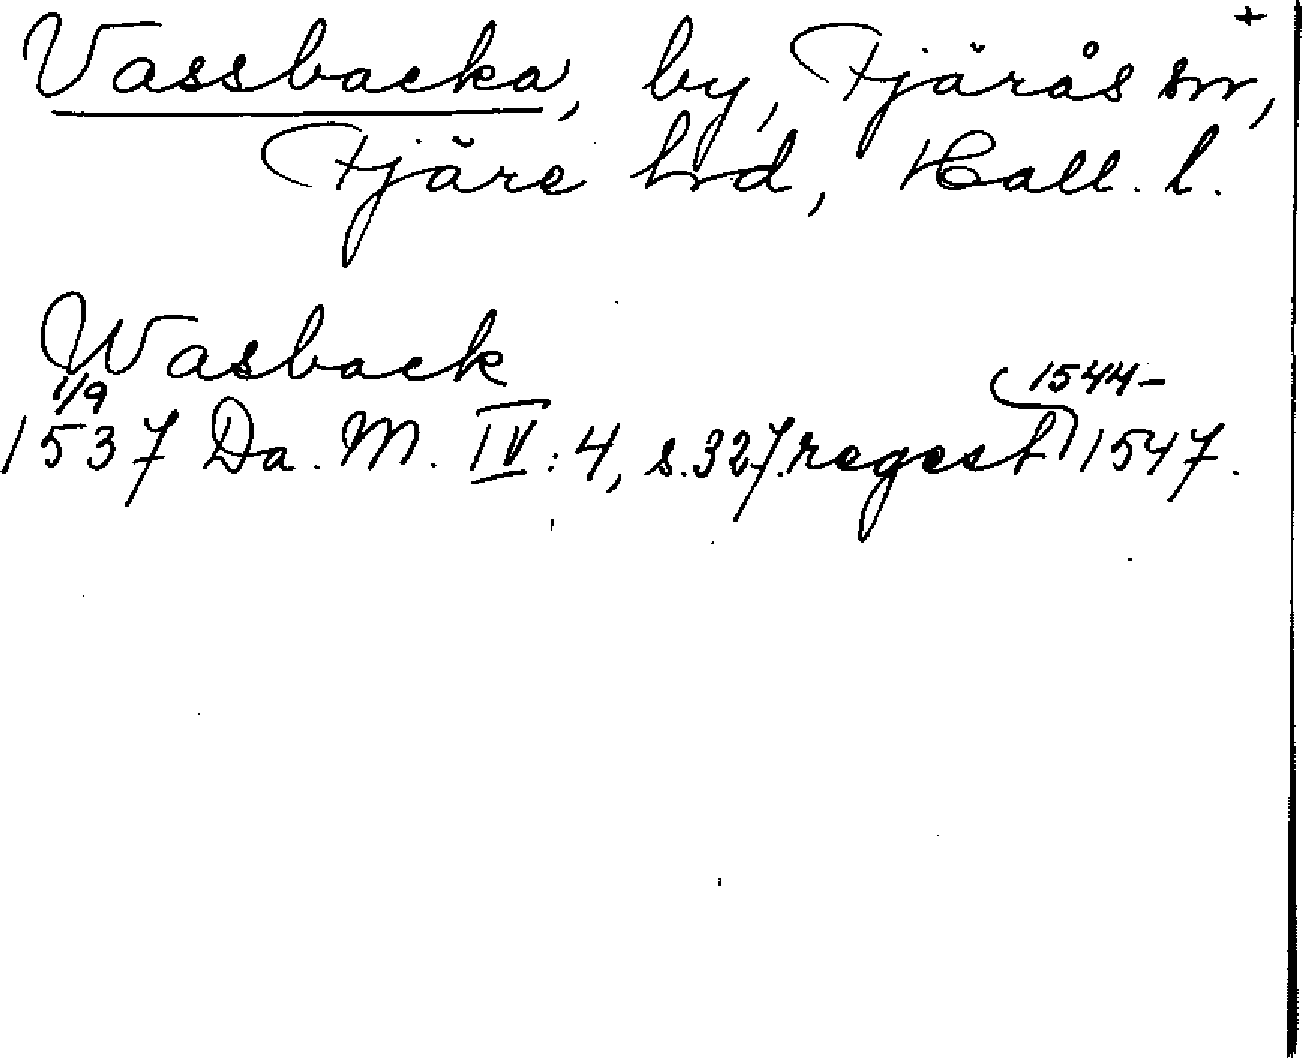 +
Vassbacka, by, Fjärås sn,
Fjäre hd, Hall. l.
Wasback
1/9
1537 Da. M. IV:4, s.327. regest 1544-1547.